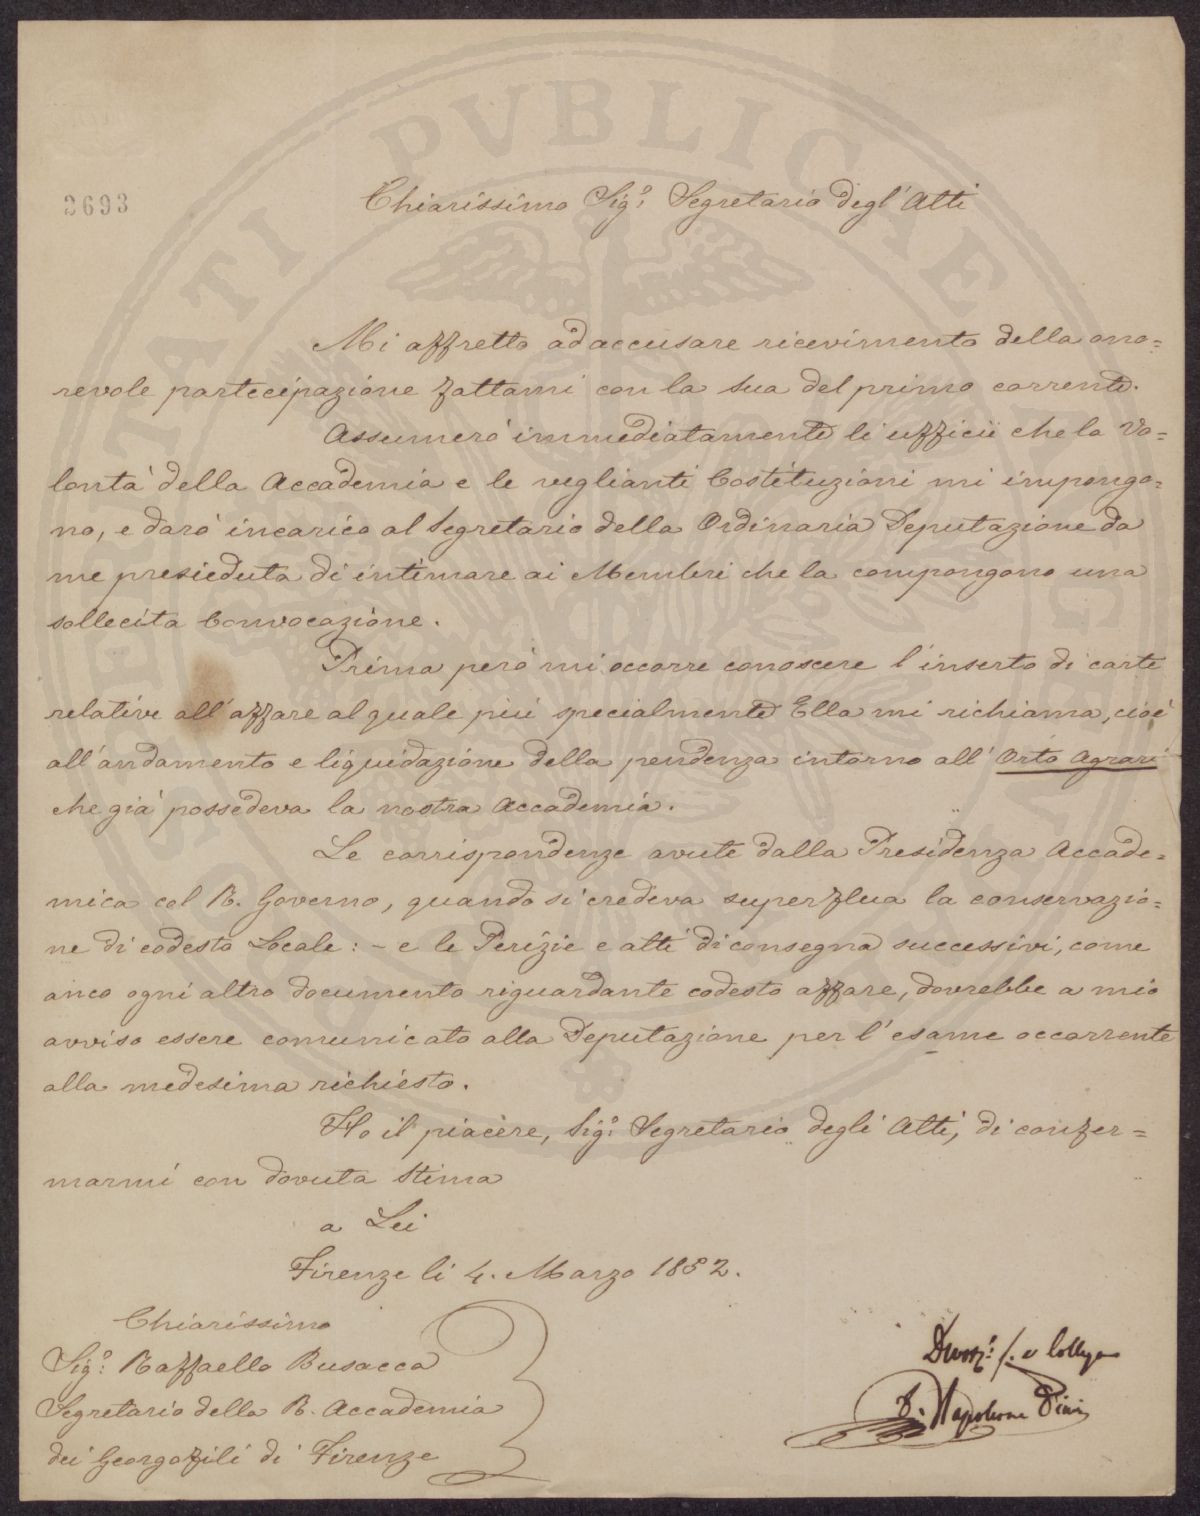 PVBLICAE
2693
Chiarissimo Sigº: Segretario degl'Atti
Mi affretto ad accusare ricevimento della ono=
revole partecipazione fattami con la sua del primo corrente.
Assumerò immediatamente li ufficii che la Vo=
lontà della Accademia e le veglianti Costituzioni mi impongo=
no, e darò incarico al Segretario della Ordinaria Deputazione da
me presieduta di intimare ai Membri che la compongono una
sollecita Convocazione.
Prima però mi occorre conoscere l'inserto di carte
relative all'affare al quale più specialmente Ella mi richiama, cioè
all'andamento e liquidazione della pendenza intorno all'Orto Agrari
che già possedeva la nostra Accademia.
Le corrispondenze avute dalla Presidenza Accade=
mica col R. Governo, quando si credeva superflua la conservazio=
ne di codesto Locale: - e le Perizie e atti di consegna successivi, come
anco ogni altro documento riguardante codesto affare, dovrebbe a mio
avviso essere comunicato alla Deputazione per l'esame occorrente
alla medesima richiesto.
Ho il piacere, Sigº: Segretario degli Atti, di confer=
marmi con dovuta stima
a Lei
Firenze li 4. Marzo 1852.
Chiarissimo
Sigº: Raffaello Busacca
Segretario della R. Accademia
dei Georgofili di Firenze
Collega
Napoleone Pini